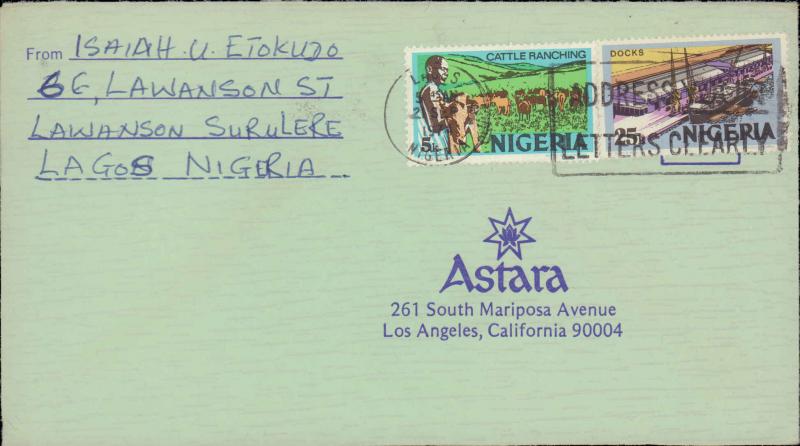 From ISAIAH. U. ETOKUDO
6E, LAWANSON ST
LAWANSON SURULERE
LAGOS NIGERIA
CATTLE RANCHING
5k
NIGERIA
DOCKS
25k
NIGERIA
LAGOS
NIGERIA
ADDRESS
LETTERS CLEARLY
Astara
261 South Mariposa Avenue
Los Angeles, California 90004